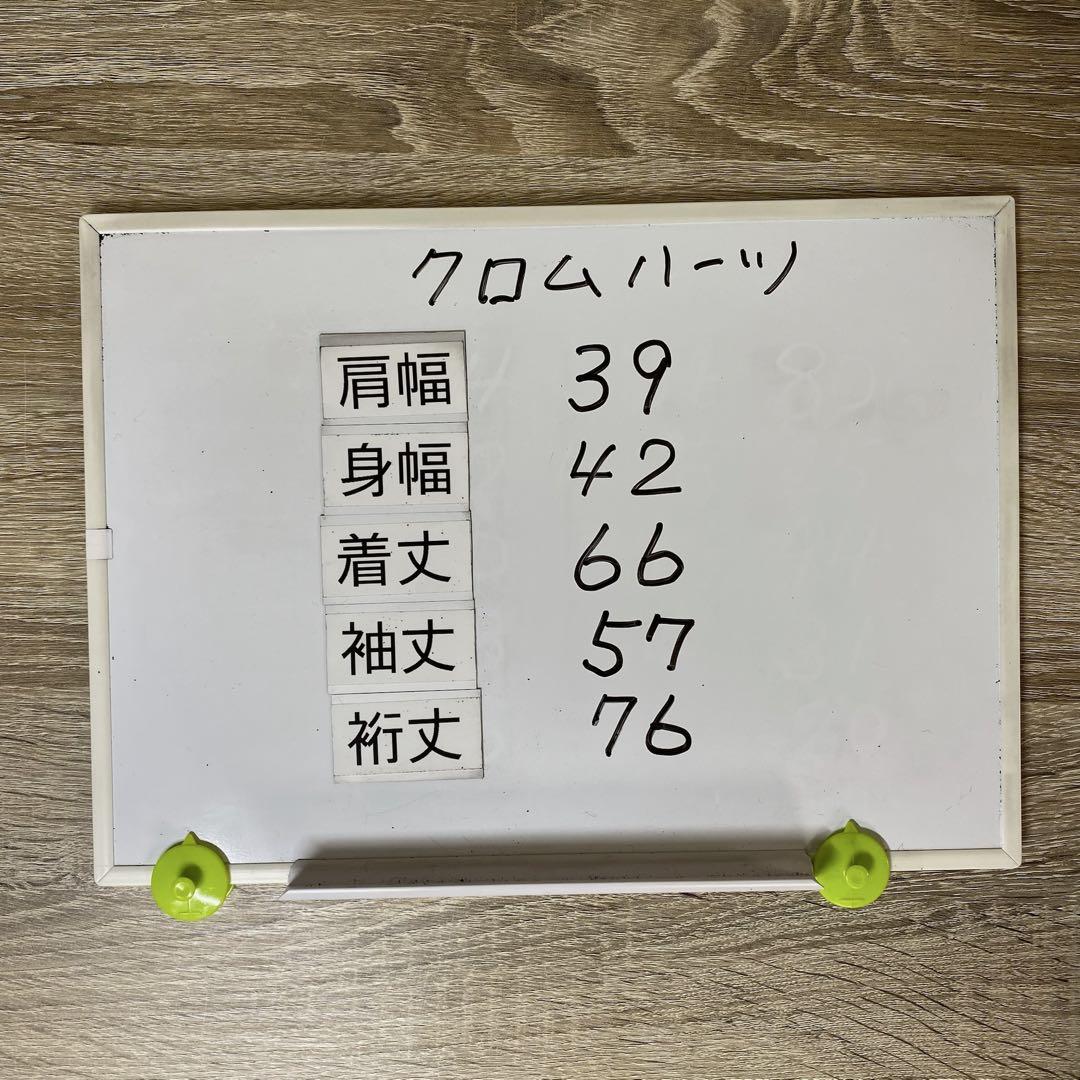 クロムハーツ
肩幅 39
身幅 42
着丈 66
袖丈 57
裄丈 76